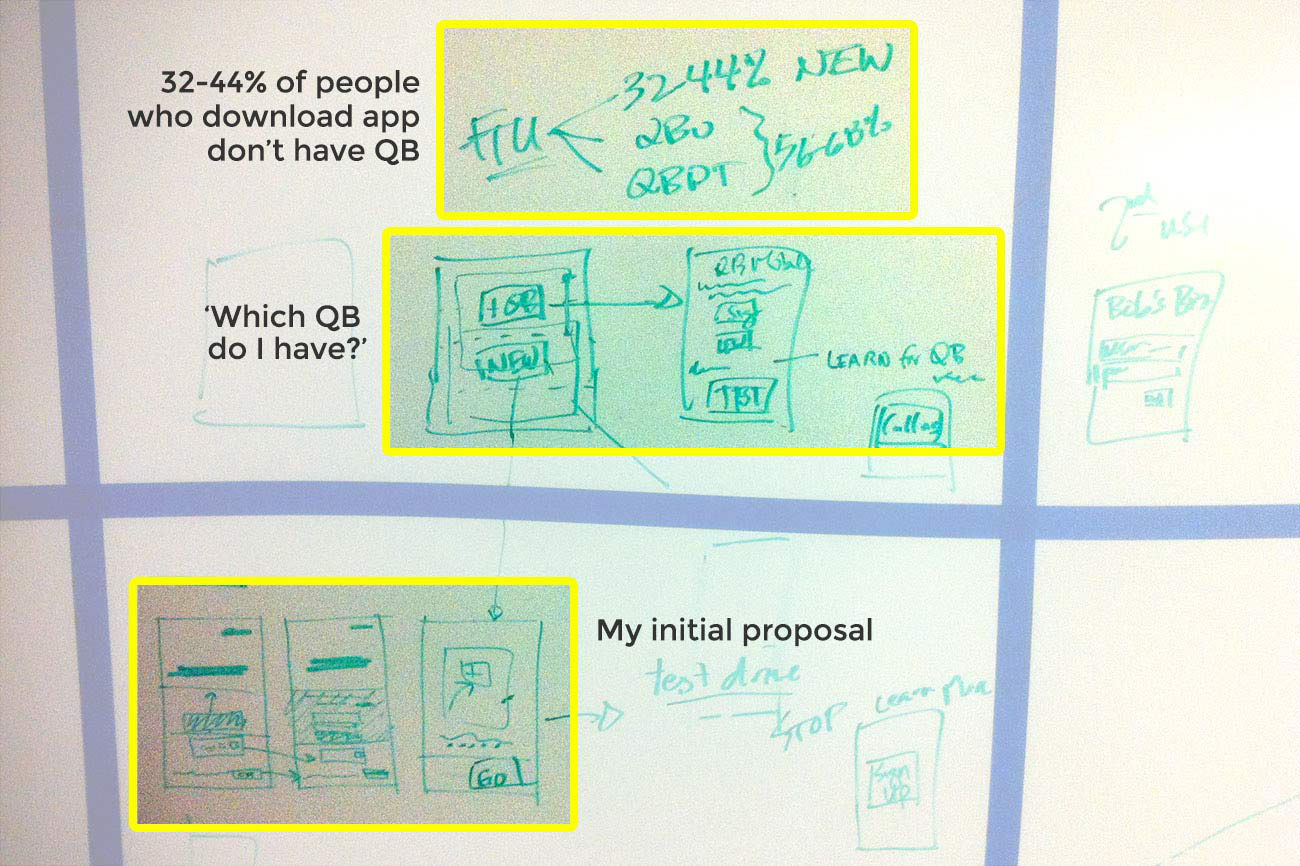 32-44% of people
who download app
don't have QB
FTU
32-44% NEW
QBO
QBDT
56-68%
'Which QB
do I have?'
NEW
TEST
LEARN for QB
2nd
use
Bob's
My initial proposal
GO
test drive
STOP
Learn
Sign
UP